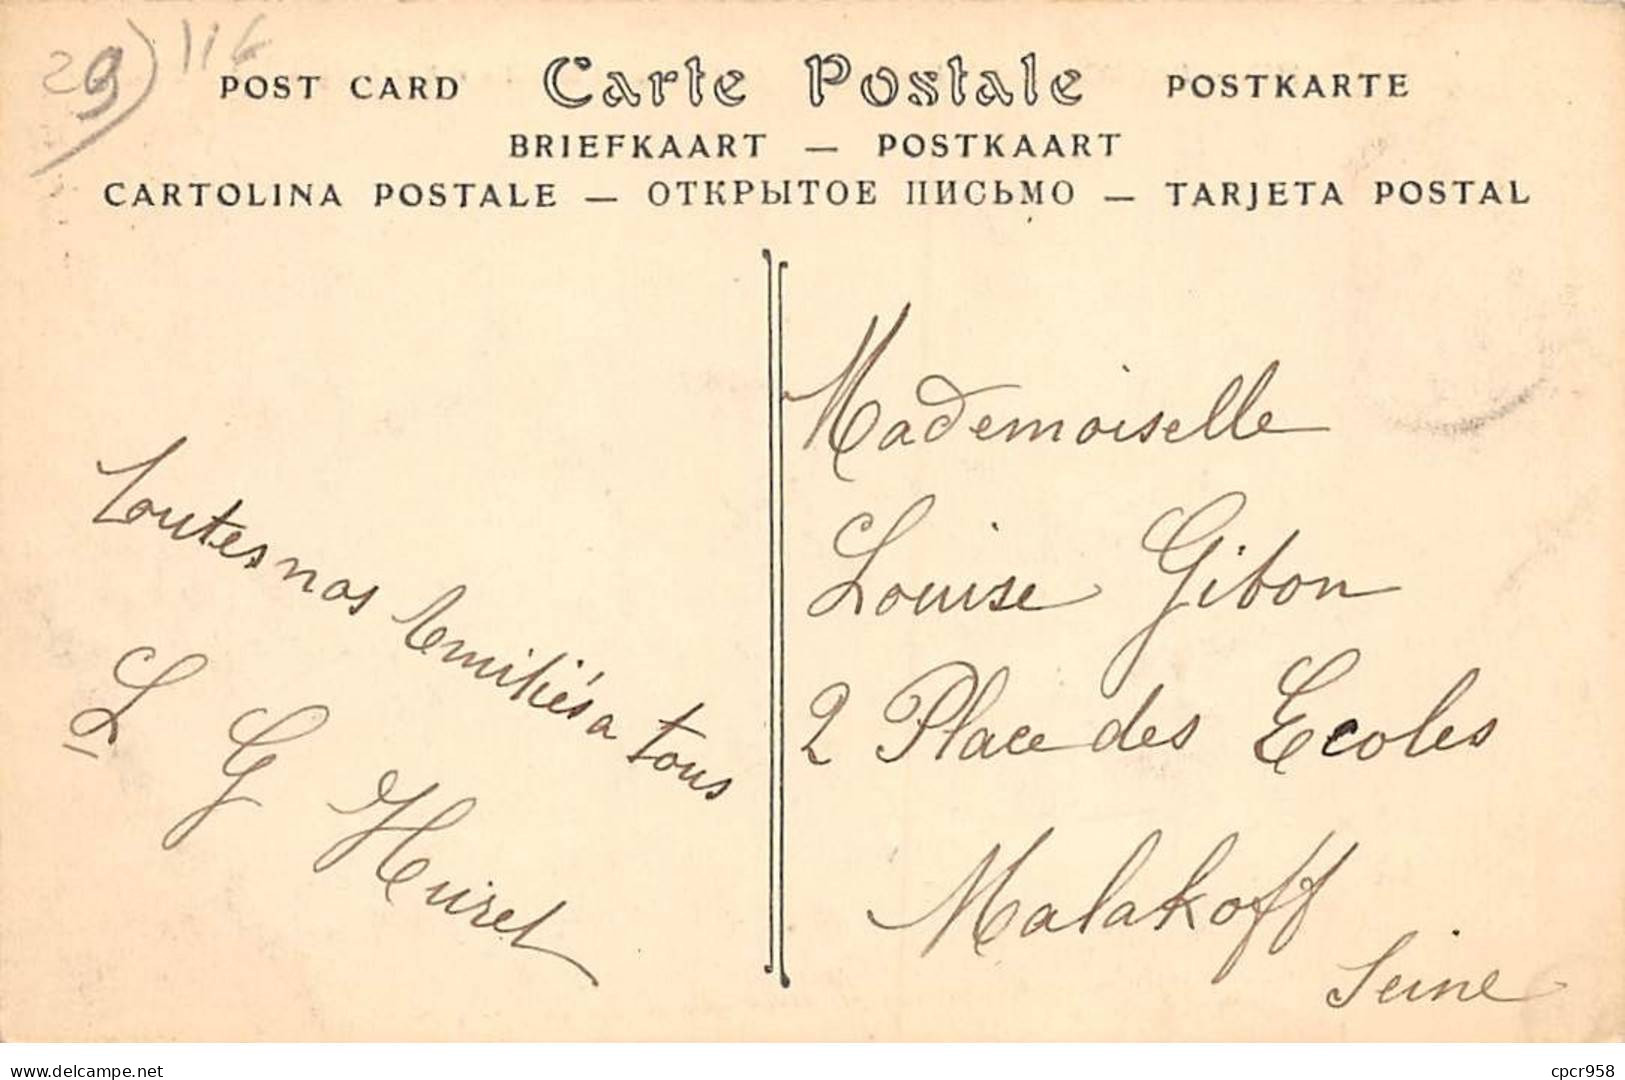 29) 116
POST CARD Carte Postale POSTKARTE
BRIEFKAART — POSTKAART
CARTOLINA POSTALE — ОТКРЫТОЕ ПИСЬМО — TARJETA POSTAL
Toutes nos amitiés a tous
L G Huirel
Mademoiselle
Louise Gibon
2 Place des Ecoles
Malakoff
Seine
www.delcampe.net
cpcr958